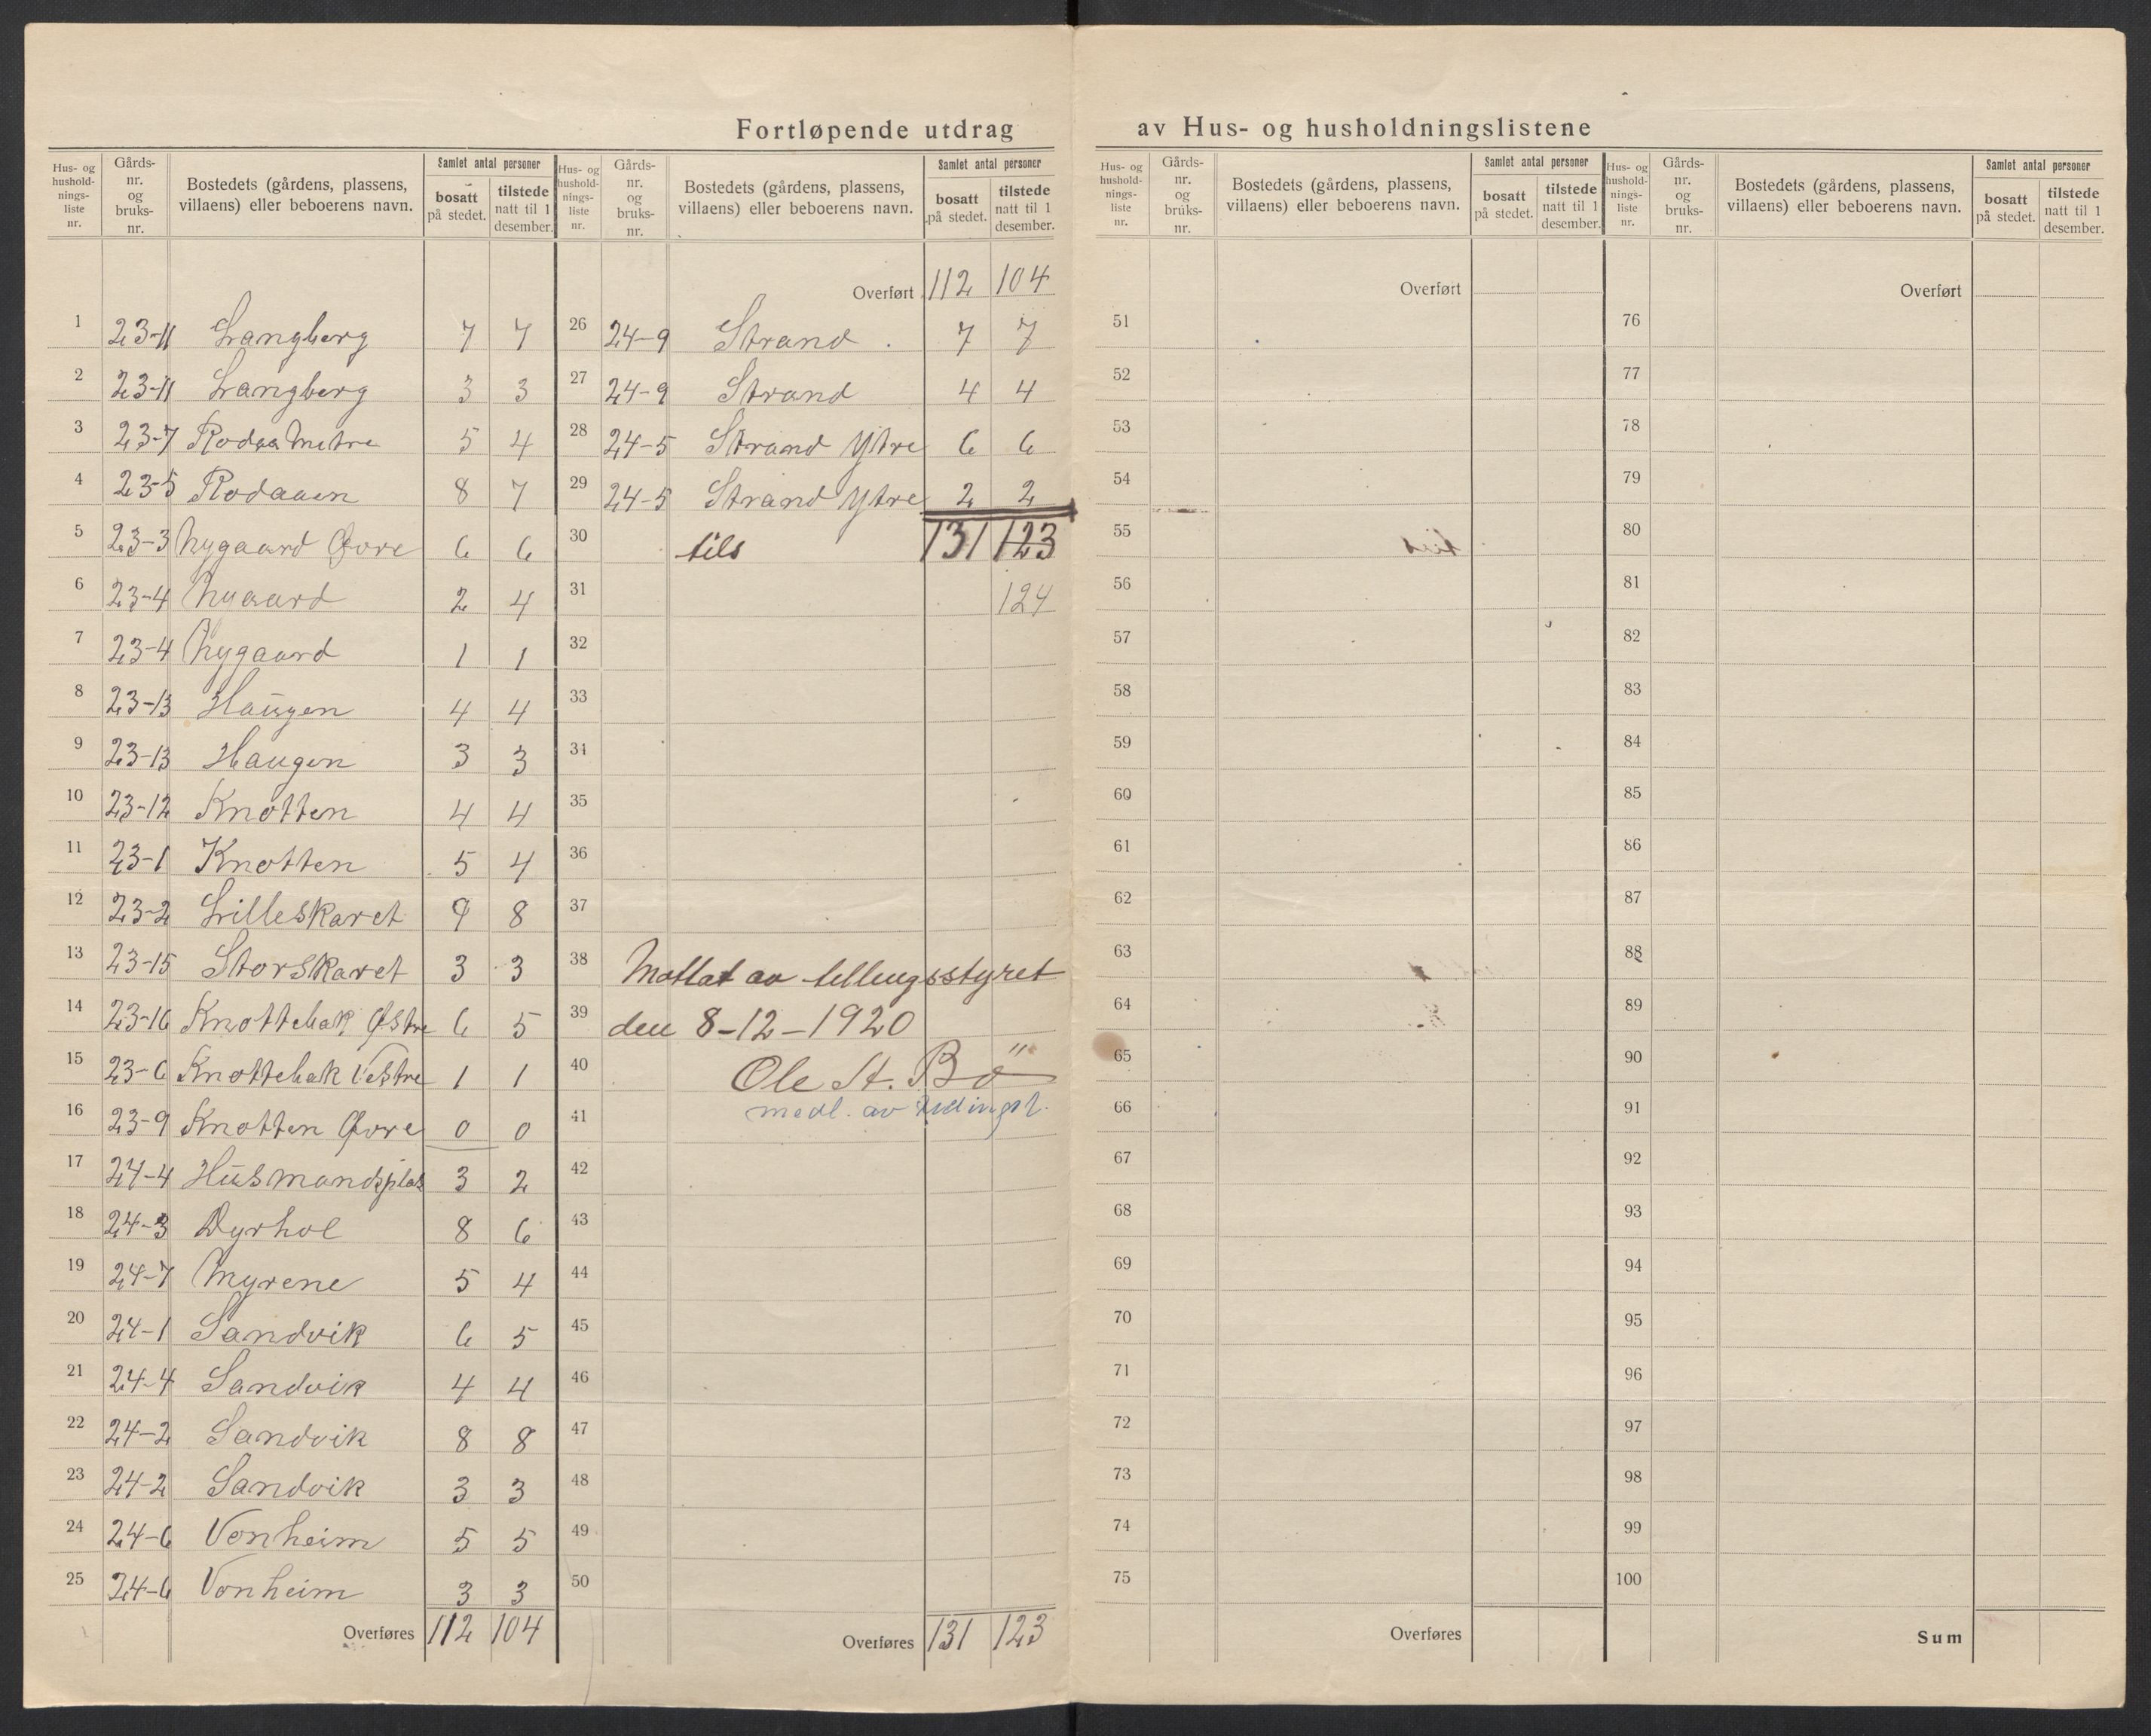 Fortløpende utdrag av Hus- og husholdningslistene
Hus- og hushold-nings-liste nr. Gårds-nr. og bruks-nr. Bostedets (gårdens, plassens, villaens) eller beboerens navn. Samlet antal personer bosatt på stedet. tilstede natt til 1 desember.
1 23-11 Langberg 7 7
2 23-11 Langberg 3 3
3 23-7 Rodaa Metre 5 4
4 23-5 Rodaaen 8 7
5 23-3 Nygaard Øvre 6 6
6 23-4 Nygaard 2 4
7 23-4 Nygaard 1 1
8 23-13 Haugen 4 4
9 23-13 Haugen 3 3
10 23-12 Knotten 4 4
11 23-1 Knotten 5 4
12 23-2 Lilleskaret 9 8
13 23-15 Storskaret 3 3
14 23-16 Knottebak Østre 6 5
15 23-6 Knottebak Vestre 1 1
16 23-9 Knotten Øvre 0 0
17 24-4 Husmandsplas 3 2
18 24-3 Dyrhol 8 6
19 24-7 Myrene 5 4
20 24-1 Sandvik 6 5
21 24-4 Sandvik 4 4
22 24-2 Sandvik 8 8
23 24-2 Sandvik 3 3
24 24-6 Vonheim 5 5
25 24-6 Vonheim 3 3
Overføres 112 104
Hus- og hushold-nings-liste nr. Gårds-nr. og bruks-nr. Bostedets (gårdens, plassens, villaens) eller beboerens navn. Samlet antal personer bosatt på stedet. tilstede natt til 1 desember.
Overført 112 104
26 24-9 Strand . 7 7
27 24-9 Strand 4 4
28 24-5 Strand Ytre 6 6
29 24-5 Strand Ytre 2 2
30 tils 131 123
31 124
32
33
34
35
36
37
38 Mottat av tellingsstyret
39 den 8-12-1920
40 Ole St. Bö
41 medl. av tellingst.
42
43
44
45
46
47
48
49
50
Overføres 131 123
Hus- og hushold-nings-liste nr. Gårds-nr. og bruks-nr. Bostedets (gårdens, plassens, villaens) eller beboerens navn. Samlet antal personer bosatt på stedet. tilstede natt til 1 desember.
Overført
51
52
53
54
55
56
57
58
59
60
61
62
63
64
65
66
67
68
69
70
71
72
73
74
75
Overføres
Hus- og hushold-nings-liste nr. Gårds-nr. og bruks-nr. Bostedets (gårdens, plassens, villaens) eller beboerens navn. Samlet antal personer bosatt på stedet. tilstede natt til 1 desember.
Overført
76
77
78
79
80
81
82
83
84
85
86
87
88
89
90
91
92
93
94
95
96
97
98
99
100
Sum